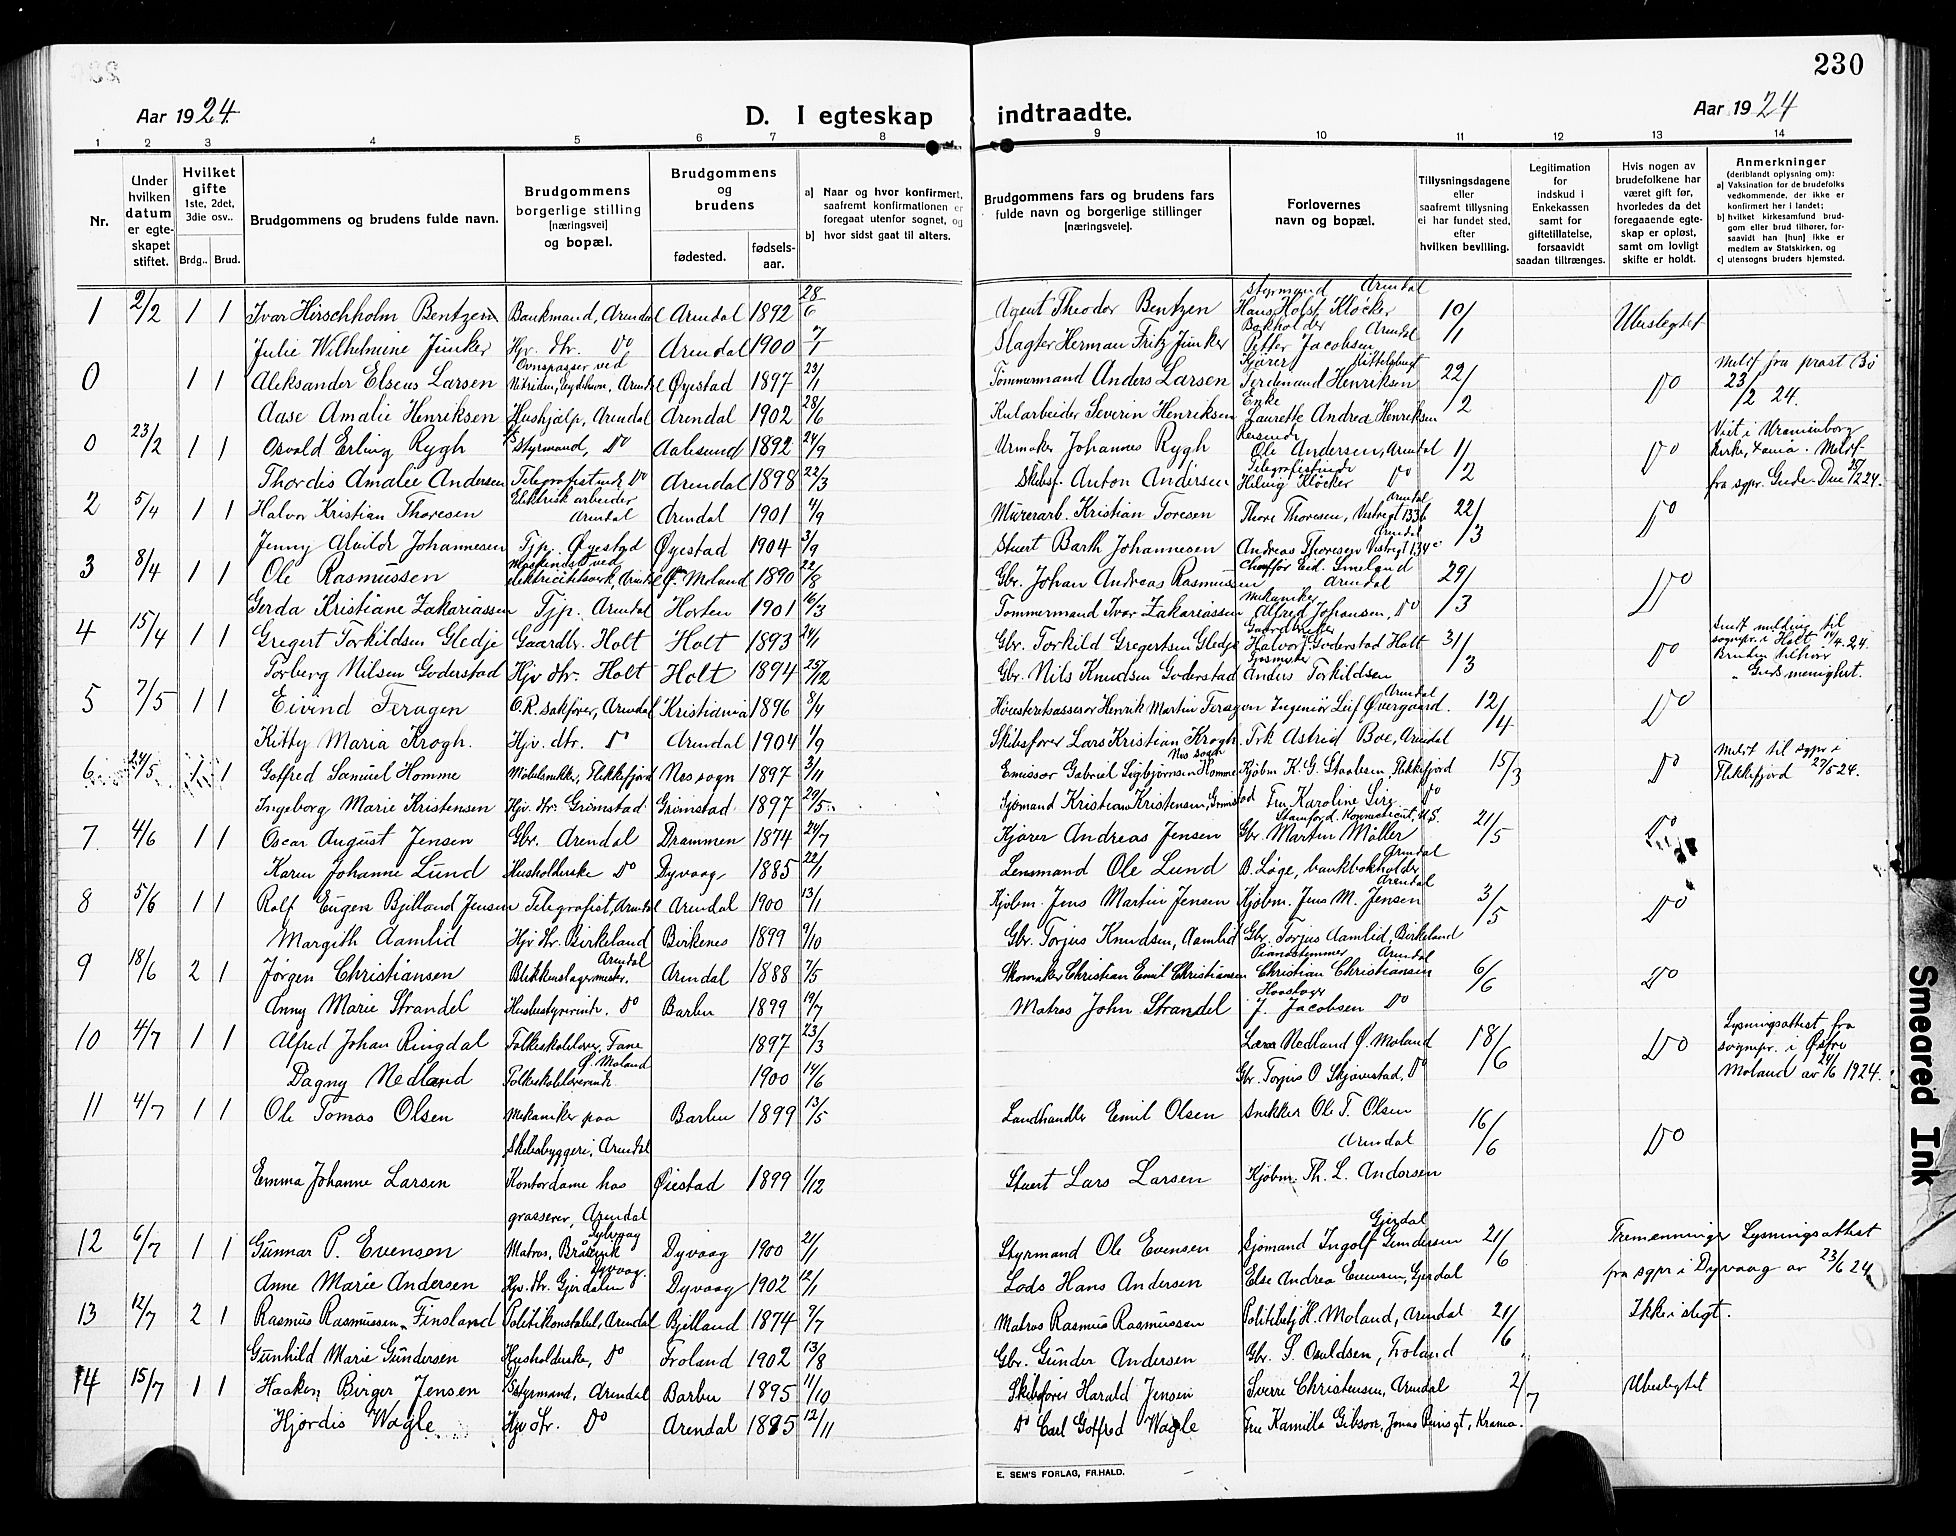 230
Aar 1924. D. I egteskap indtraadte. Aar 1924
1 2 3 4 5 6 7 8 9 10 11 12 13 14
Nr.
Under hvilken datum er egteskapet stiftet.
Hvilket gifte 1ste, 2det, 3die osv..
Brdg.. Brud.
Brudgommens og brudens fulde navn.
Brudgommens borgerlige stilling [næringsvei] og bopæl.
Brudgommens og brudens
fødested. fødsels-aar.
a) Naar og hvor konfirmert, saafremt konfirmationen er foregaat utenfor sognet, og
b) hvor sidst gaat til alters.
Brudgommens fars og brudens fars fulde navn og borgerlige stillinger [næringsveie].
Forlovernes navn og bopæl.
Tillysningsdagene eller saafremt tillysning ei har fundet sted, efter hvilken bevilling.
Legitimation for indskud i Enkekassen samt for giftetillatelse, forsaavidt saadan tiltrænges.
Hvis nogen av brudefolkene har været gift før, hvorledes da det foregaaende egteskap er opløst, samt om lovligt skifte er holdt.
Anmerkninger (deriblandt oplysning om):
a) Vaksination for de brudefolks vedkommende, der ikke er konfirmert her i landet;
b) hvilket kirkesamfund brudgom eller brud tilhører, forsaavidt han [hun] ikke er medlem av Statskirken, og
c) utensogns bruders hjemsted.
1 2/2 1 1 Ivar Hirschholm Bentzen Bankmand, Arendal Arendal 1892 28/6 Agent Theodor Bentzen Styrmand Arendal Hans Holst Kløcker 10/1 Ubeslegtet
Julie Wilhelmine Junker Hjv. dtr. Do Arendal 1900 Slagter Herman Fritz Junker Bokholder Arendal Petter Jacobsen
0 1 1 Aleksander Elseus Larsen Ovnspasser ved Nitriden, Eydehavn, Arendal Øyestad 1897 23/1 Tømmermand Anders Larsen Kjører Kittelsbugt Ferdenand Henriksen 22/2 Do Meld. fra prost Bø 23/2 24.
Aase Amalie Henriksen Hushjælp, Arendal Arendal 1902 28/6 Kularbeider Severin Henriksen Enke Laurette Andrea Henriksen
0 23/2 1 1 Osvald Erling Rygh Styrmand, Do Aalesund 1892 24/9 Urmaker Johannes Rygh Reisende Ole Andersen, Arendal 1/2 Do Viet i Uranienborg kirke, Kania. Meld. fra sgpr. Gude. Due 28/2 24.
Thordis Amalie Andersen Telegrafistinde Do Arendal 1898 22/3 Skibsf. Anton Andersen Telegrafistinde Helmig Kløcker Do
2 5/4 1 1 Halvor Kristian Thoresen Elektrisk arbeider Arendal Arendal 1901 4/9 Murerarb. Kristian Toresen Thore Thoresen, Vestregt 133b Arendal 22/3 Do
Jenny Alvilde Johannesen Tjp. Øyestad Øyestad 1904 3/9 Stuert Barth Johannesen Andreas Thoresen Vestregt 134c Arendal
3 8/4 1 1 Ole Rasmussen Maskinist ved elektricitetsverk, Arendal Ø. Moland 1890 22/8 Gbr. Johan Andreas Rasmussen Chauffør Eid. Smeland Arendal 29/3 Do
Gerda Kristiane Zakariassen Tjp. Arendal Horten 1901 16/3 Tømmermand Ivar Zakariassen Mekaniker Alfred Johansen, Do
4 15/4 1 1 Gregert Torkildsen Gledje Gaardbr. Holt Holt 1893 24/1 Gbr. Torkild Gregertsen Gledje Gaardbruker Halvor J. Goderstad Holt 31/3 Do Sendt melding til sognepr. i Holt 14/4.24. Bruden tilhører "Guds menighet.
Torberg Nilsen Goderstad Hjv dtr. Holt Holt 1894 25/12 Gbr. Nils Knudsen Goderstad Anders Torkildsen
5 7/5 1 1 Eivind Feragen O.R. sakfører, Arendal Kristiania 1896 8/4 Høiesteretsassessor Henrik Martin Feragen Ingeniør Leif Øvergaard. Arendal 12/4 Do
Kitty Maria Krogh. Hjv. dtr. Do Arendal 1904 1/9 Skibsfører Lars Kristian Krogh. Frk Astrid Boe, Arendal
6 24/5 1 1 Gotfred Samuel Homme Møbelsnekker, Flekkefjord Nes sogn 1897 3/11 Emissær Gabriel Sigbjørnsen Homme Nes sogn Kjøbm K. G. Staalesen, Flekkefjord 15/3 Do Meld. til sgpr i Flekkefjord 27/5 24.
Ingeborg Marie Kristensen Hjv. dtr. Grimstad. Grimstad. 1897 29/5 Sjømand Kristian Kristensen, Grimstad Fru Karoline Do
7 4/6 1 1 Oscar August Jensen Gbr. Arendal Drammen 1874 24/7 Kjører Andreas Jensen Stamford, Konnecticut, U.S. Gbr. Martin Møller 21/5 Do
Karen Johanne Lund Husholderske Do Dyvaag 1885 22/1 Lensmand Ole Lund B. Løge, bankbokholder Arendal
8 5/6 1 1 Ralf Eugen Bjelland Jensen Telegrafist, Arendal Arendal 1900 13/1 Kjøbm. Jens Martin Jensen Kjøbm. Jens M. Jensen Arendal 3/5 Do
Margith Aamlid Hjv dtr. Birkeland Birkenes 1899 9/10 Gbr. Torjus Knudsen, Aamlid Gbr. Torjus Aamlid, Birkeland
9 18/6 2 1 Jørgen Christiansen Blikkenslagermester. Arendal Arendal 1888 7/5 Skomaker Christian Emil Christiansen Pianostemmer Arendal Christian Christiansen 6/6 Do
Anny Marie Strandel Husbestyrerinde. Do Barbu 1899 19/7 Matros John Strandel J. Jacobsen Do
10 4/7 1 1 Alfred Johan Ringdal Folkeskolelærer, Fane 1897 23/3 Lærer Nedland Ø. Moland 18/6 Do Lysningsattest fra sognepr. i Østre Moland av 24/6 1924.
Dagny Nedland Ø. Moland Folkeskolelærerinde 1900 14/6 Gbr. Torjus O Skjævestad, Do
11 4/7 1 1 Ole Tomas Olsen Mekaniker paa Skibsbyggeri, Arendal Barbu 1899 13/5 Landhandler Emil Olsen Snekker Ole T. Olsen Arendal 16/6 Do
Emma Johanne Larsen Kontordame hos grosserer, Arendal Øiestad 1899 1/12 Stuert Lars Larsen Kjøbm. Th. L. Andersen
12 6/7 1 1 Gunnar P. Evensen Matros, Bråtvik Dyvaag Dyvaag 1900 21/1 Styrmand Ole Evensen Sjømand Ingolf Gundersen Gjerdal 21/6 Tremenninge Lysningsattest fra sgpr i Dyvaag av 23/6 24
Anne Marie Andersen Hjv. dtr. Gjerdalen Dyvaag. Dyvaag 1902 12/1 Lods Hans Andersen Else Andrea Evensen, Gjerdal
13 12/7 2 1 Rasmus Rasmussen Finsland Politikonstabel, Arendal Bjelland 1874 9/7 Matros Rasmus Rasmussen Politibetj H. Moland, Arendal 21/6 Ikke i slegt.
Gunhild Marie Gundersen Husholderske, Do Froland 1902 13/8 Gbr. Gunder Andersen Gbr. S. Osuldsen, Froland
14 15/7 1 1 Haaken Birger Jensen Styrmand, Arendal Barbu 1895 11/10 Skibsfører Harald Jensen Sverre Christensen, Arendal 2/7 Ubeslegtet
Hjørdis Wagle Hjv dtr. Do Arendal 1895 12/11 Do Carl Gotfred Wagle Fru Kamilla Gibson, Jonas Reinsgt, Krania.
E. SEM'S FORLAG, FR.HALD.
Smeared Ink